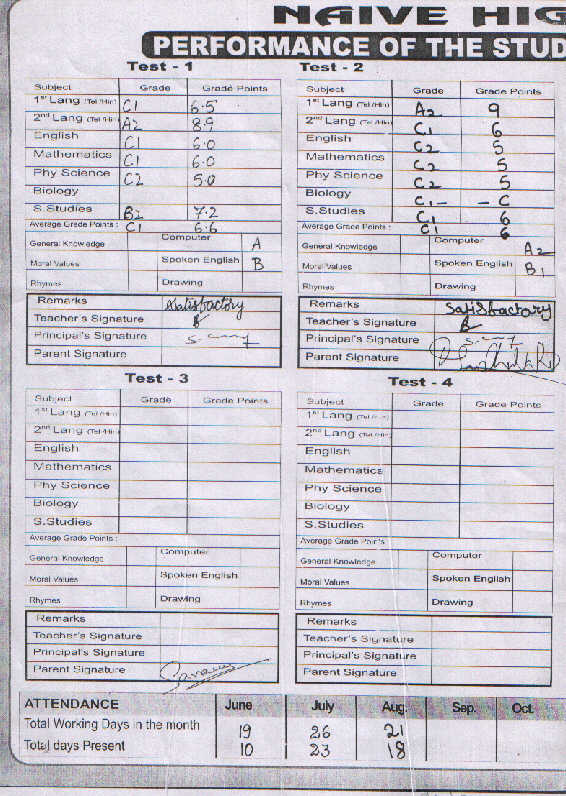 NAIVE HIG
PERFORMANCE OF THE STUD
Test - 1
Subject Grade Grade Points
1st Lang (Tel /Hin) C1 6.5
2nd Lang (Tel /Hin) A2 8.9
English C1 6.0
Mathematics C1 6.0
Phy Science C2 5.0
Biology
S.Studies B2 7.2
Average Grade Points : C1 6.6
General Knowledge Computer A
Moral Values Spoken English B
Rhymes Drawing
Remarks Satisfactory
Teacher's Signature
Principal's Signature
Parent Signature
Test - 2
Subject Grade Grade Points
1st Lang (Tel /Hin) A2 9
2nd Lang (Tel /Hin) C1 6
English C2 5
Mathematics C2 5
Phy Science C2 5
Biology C1 - - C
S.Studies C1 6
Average Grade Points : C1 6
General Knowledge Computer A2
Moral Values Spoken English B1
Rhymes Drawing
Remarks Satisfactory
Teacher's Signature
Principal's Signature
Parent Signature
Test - 3
Subject Grade Grade Points
1st Lang (Tel /Hin)
2nd Lang (Tel /Hin)
English
Mathematics
Phy Science
Biology
S.Studies
Average Grade Points :
General Knowledge Computer
Moral Values Spoken English
Rhymes Drawing
Remarks
Teacher's Signature
Principal's Signature
Parent Signature
Test - 4
Subject Grade Grade Points
1st Lang (Tel /Hin)
2nd Lang (Tel /Hin)
English
Mathematics
Phy Science
Biology
S.Studies
Average Grade Points :
General Knowledge Computer
Moral Values Spoken English
Rhymes Drawing
Remarks
Teacher's Signature
Principal's Signature
Parent Signature
ATTENDANCE June July Aug. Sep. Oct.
Total Working Days in the month 19 26 21
Total days Present 10 23 18